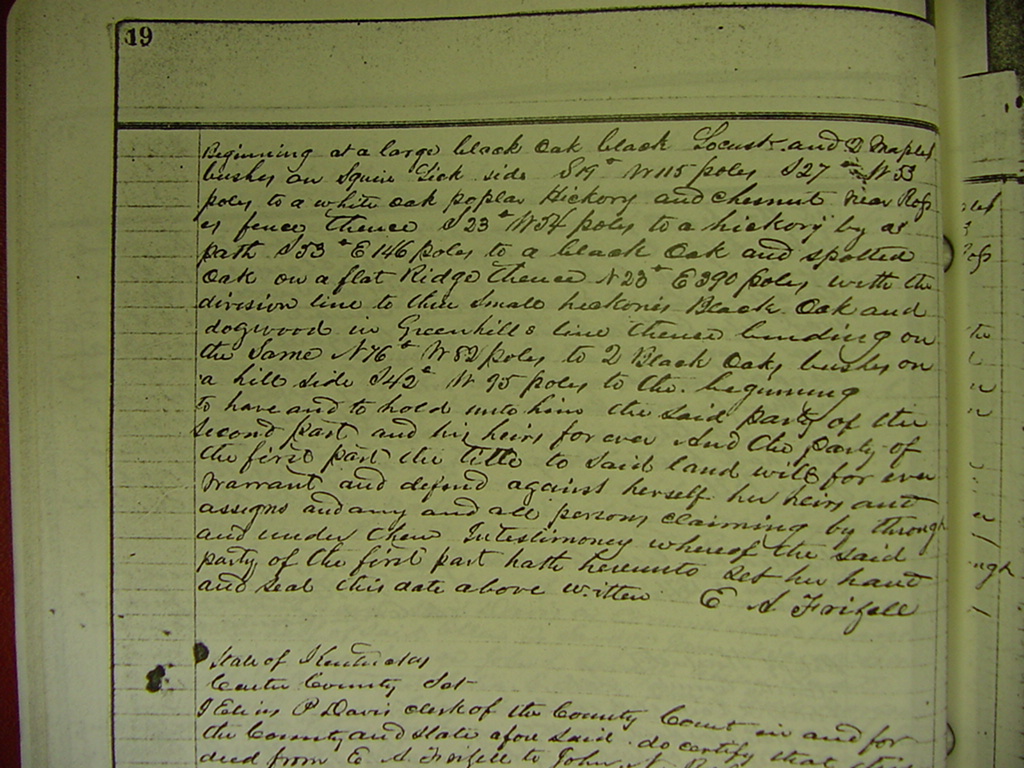 19
Beginning at a large black Oak black Locust and 2 Maples
bushes on Squire Lick side S19° W115 poles S27° W53
poles to a white oak poplar Hickory and chesnut near Rop
es fence thence S23° W54 poles to a hickory by a
path S53° E146 poles to a black Oak and spotted
Oak on a flat Ridge thence N23° E390 poles with the
division line to thre small hickories Black Oak and
dogwood in Greenhills line thence binding on
the Same N76° W82 poles to 2 Black Oaks bushes on
a hill side S42° W 95 poles to the beginning
to have and to hold unto him the said party of the
second part and his heirs for ever And the party of
the first part the title to said land will for ever
Warrant and defend against herself her heirs and
assigns and any and all persons claiming by through
and under them Intestimoney whereof the said
party of the first part hath hereunto set her hand
and seal this date above written E A Frizell
State of Kentucky
Carter County Sct
I Elias P Davis clerk of the County Court in and for
the County and State afore said do certify that this
deed from E A Frizell to John N
the
ngh